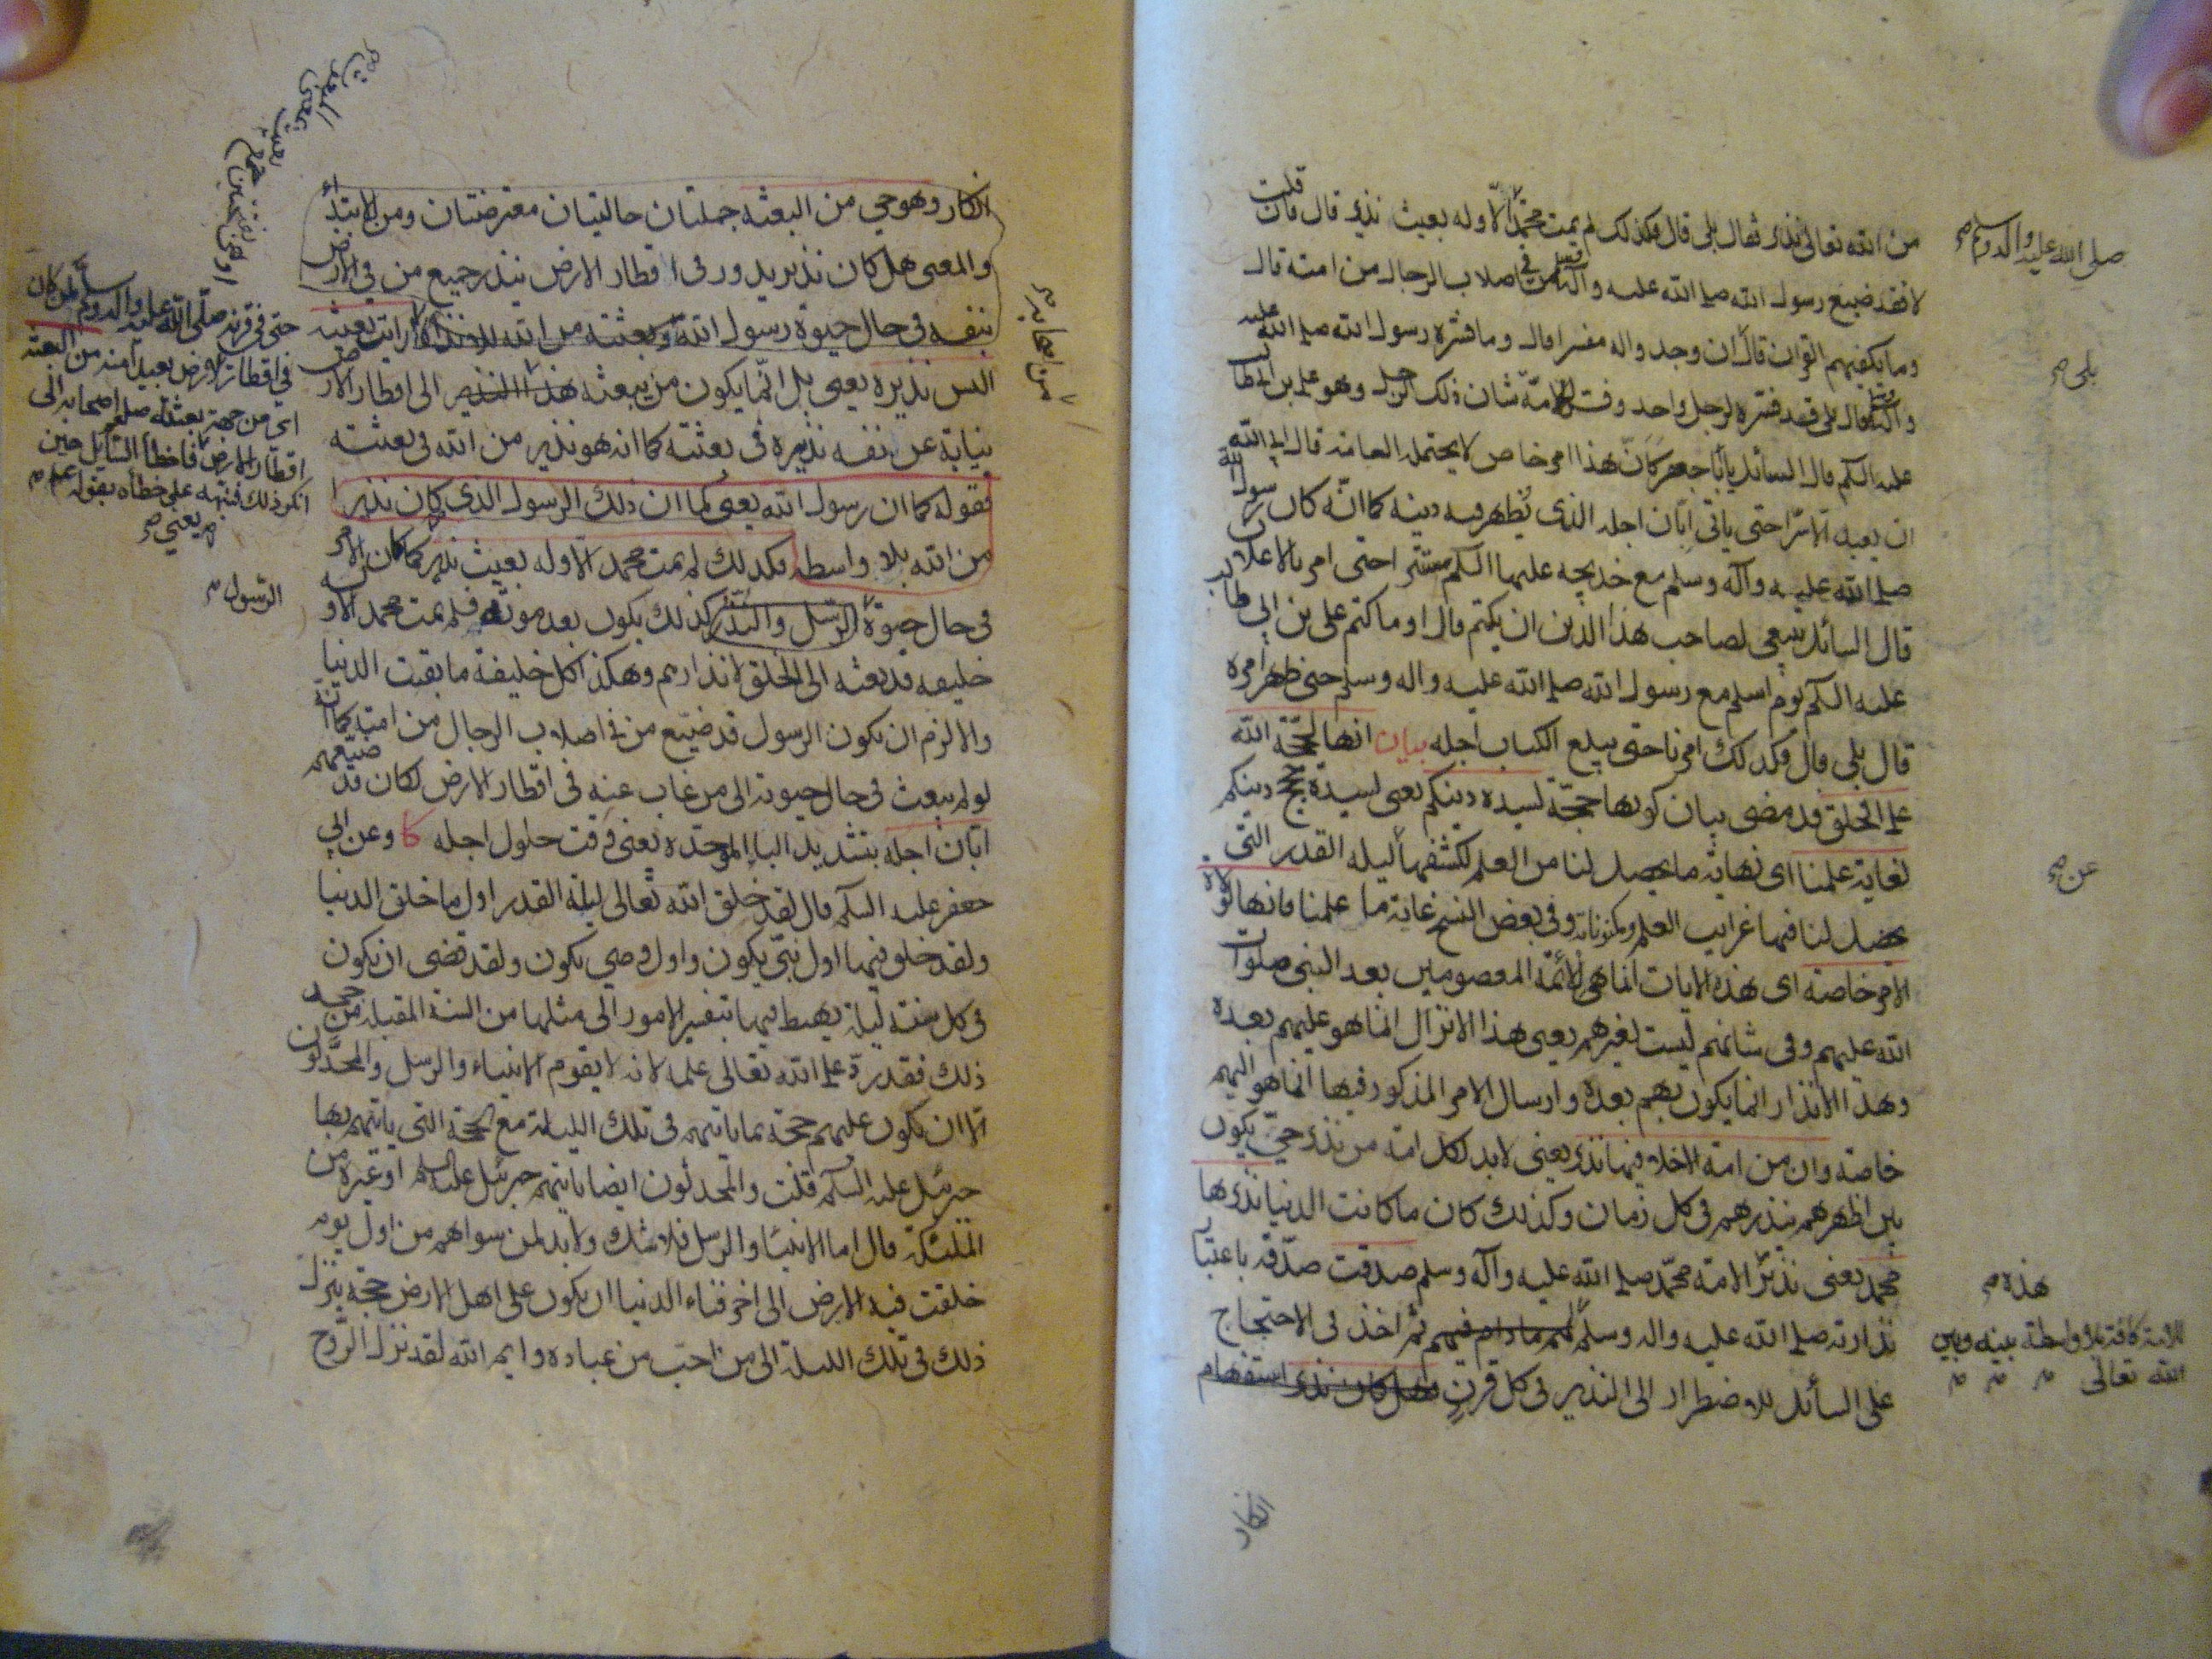 من الله تعالى نذير فقال بلى قال فكذلك لم يمت محمد الا وله بعيث نذير قال فان قلت
لا فقد ضيع رسول الله صلى الله عليه وآله من في اصلاب الرجال من امته قال
وما يكفيهم القران قال ان وجد واله مفسرا قال وما فسره رسول الله صلى الله عليه
وآله قال بلى قد فسره لرجل واحد وفسر للامة شان ذلك الرجل وهو علي بن ابي طالب
عليه السلم قال السائل يا أبا جعفر كان هذا امر خاص لا يحتمله العامة قال ابى الله
ان يعبد الا سرا حتى ياتي ابان اجله الذي يظهر فيه دينه كما انه كان رسول الله
صلى الله عليه وآله وسلم مع خديجه عليها السلم مستترا حتى امر بالاعلان
قال السائل ينبغي لصاحب هذا الدين ان يكتم قال او ما كتم علي بن ابي طالب
عليه السلم يوم اسلم مع رسول الله صلى الله عليه واله وسلم حتى ظهر امره
قال بلى قال فكذلك امرنا حتى يبلغ الكتاب اجله بيان انها لحجة الله
على الخلق قد مضى بيان كونها حجة لسيدة دينكم يعنى لسيدة حجج دينكم
لغاية علمنا اى نهاية ما يحصل لنا من العلم لكشفها ليلة القدر التى
يحصل لنا فيها غرايب العلم ومكنوناته وفى بعض النسخ غاية ما علمنا فانها لولاة
الامر خاصة اى هذه الايات انما هى للائمة المعصومين بعد النبى صلوات
الله عليهم وفى شانهم ليست لغيرهم يعنى هذا الانزال انما هو عليهم بعده
وهذا الانذار انما يكون بهم بعده وارسال الامر المذكور فيها انما هو اليهم
خاصة وان من امة الا خلا فيها نذير يعنى لا بد لكل امة من نذير حي يكون
بين اظهرهم ينذرهم فى كل زمان وكذلك كان ما كانت الدنيا نذيرها
محمد يعنى نذير الامة محمد صلى الله عليه وآله وسلم صدقت صدقه باعتبار
نذارته صلى الله عليه واله وسلم لهم ما دام فيهم ثم اخذ فى الاحتجاج
على السائل للاضطرار الى النذير فى كل قرن فهل كان نذير استفهام
صلى الله عليه وآله وسلم صح
بلى صح
عن صح
هذه م
للامة كافة بلا واسطة بينه وبين
الله تعالى م م م
انكار
انكار وهو حي من البعثه جملتان حاليتان معترضتان ومن للابتداء
والمعنى هل كان نذير يدور فى اقطار الارض ينذر جميع من فى الارض
بنفسه فى حال حيوة رسول الله وبعثته من الله للانذار ارايت بعيثه
اليس نذيره يعنى بل انما يكون من يبعثه هذا النذير الى اقطار الارض
نيابة عن نفسه نذيره فى بعثته كما انه هو نذير من الله فى بعثته
فقوله كما ان رسول الله يعنى كما ان ذلك الرسول الذى كان نذيرا
من الله بلا واسطه فكذلك لم يمت محمد الا وله بعيث نذير كما كان الامر
فى حال حيوة الرسل والنذر كذلك يكون بعد موته فلم يمت محمد الا وله
خليفه قد بعثه الى الخلق لانذارهم وهكذا كل خليفة ما بقيت الدنيا
والا لزم ان يكون الرسول قد ضيع من فى اصلاب الرجال من امته كما انه
لو لم يبعث فى حال حيوته الى من غاب عنه فى اقطار الارض لكان قد ضيعهم
ابان اجله بتشديد الباء الموحدة يعنى وقت حلول اجله كا وعن ابي
جعفر عليه السلم قال لقد خلق الله تعالى ليلة القدر اول ما خلق الدنيا
ولقد خلق فيها اول نبي يكون واول وصي يكون ولقد قضى ان يكون
فى كل سنة ليلة يهبط فيها بتفسير الامور الى مثلها من السنة المقبلة من جحد
ذلك فقد رد على الله تعالى علمه لانه لا يقوم الانبياء والرسل والمحدثون
الا ان يكون عليهم حجة بما ياتيهم فى تلك الليلة مع الحجة التى ياتيهم بها
جبرئيل عليه السلم قلت والمحدثون ايضا ياتيهم جبرئيل عليه السلم او غيره من
الملئكة قال اما الانبياء والرسل فلا شك ولا بد لمن سواهم من اول يوم
خلقت فيه الارض الى اخر فناء الدنيا ان يكون على اهل الارض حجة ينزل
ذلك فى تلك الليلة الى من احب من عباده وايم الله لقد نزل الروح
من اصحابه صح
حتى فى قرنه صلى الله عليه وآله وسلم لمن كان
فى اقطار الارض بعيدا منه من البعثه
اى من جهة بعثته صلعم اصحابه الى
اقطار الارض فاخطأ السائل حين
انكر ذلك فنبهه على خطأه بقوله
يعنى صح
الرسول م